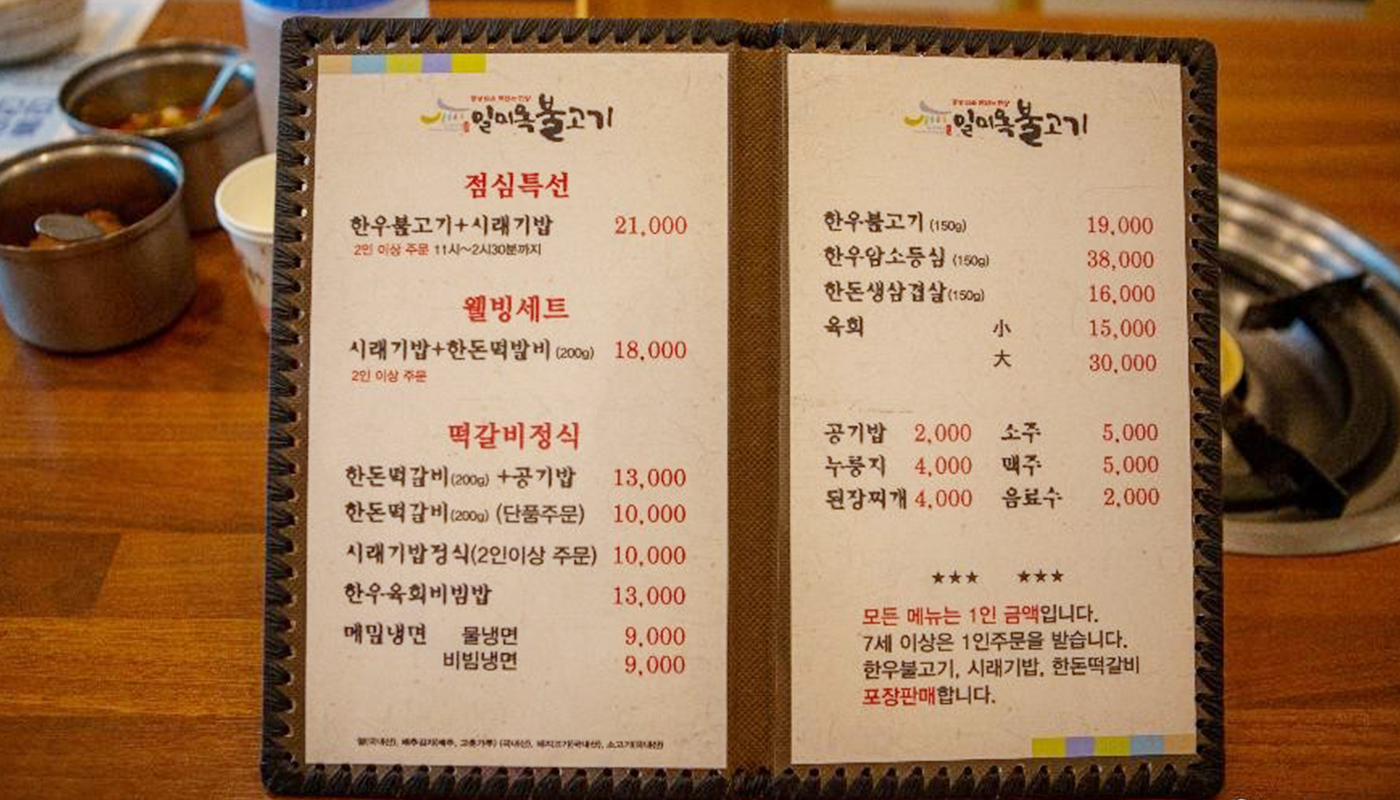 일미옥불고기
점심특선
한우불고기+시래기밥 21,000
2인 이상 주문 11시~2시30분까지
웰빙세트
시래기밥+한돈떡갈비 (200g) 18,000
2인 이상 주문
떡갈비정식
한돈떡갈비(200g) +공기밥 13,000
한돈떡갈비(200g) (단품주문) 10,000
시래기밥정식(2인이상 주문) 10,000
한우육회비빔밥 13,000
메밀냉면 물냉면 9,000
비빔냉면 9,000
쌀(국내산), 배추김치(배추, 고춧가루) (국내산), 돼지고기(국내산), 소고기(국내산)
일미옥불고기
한우불고기 (150g) 19,000
한우암소등심 (150g) 38,000
한돈생삼겹살(150g) 16,000
육회 小 15,000
大 30,000
공기밥 2,000 소주 5,000
누룽지 4,000 맥주 5,000
된장찌개 4,000 음료수 2,000
★★★ ★★★
모든 메뉴는 1인 금액입니다.
7세 이상은 1인주문을 받습니다.
한우불고기, 시래기밥, 한돈떡갈비
포장판매합니다.